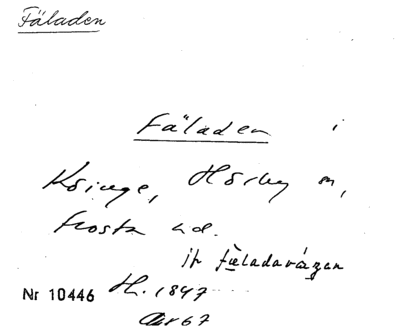 Fäladen
Fäladen i
Köinge, Hörby sn,
Frosta hd.
jr fäladavägen
Nr 10446 H. 1847
Avr 67